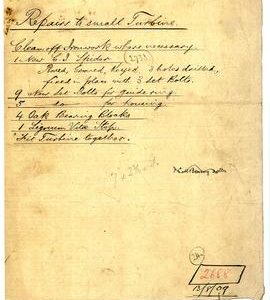 Repairs to small Turbine.
Clean off Ironwork where necessary.
1 New C.I. Spider
Bored, Turned, Keyed, holes drilled,
fixed in place with 3 set Bolts.
9 New Set Bolts for guide ring
5 do for housing
4 Oak Bearing Blocks
1 Lignum Vitæ Step.
Fit Turbine together.
2688
13/8/09